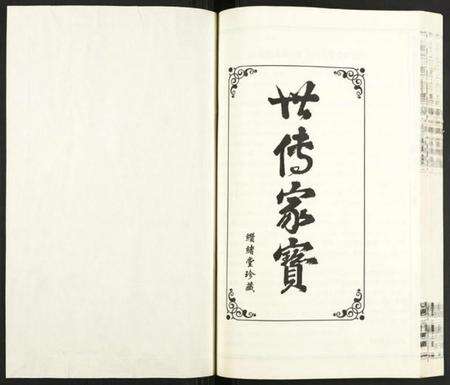 世传家寶
纘緒堂珍藏